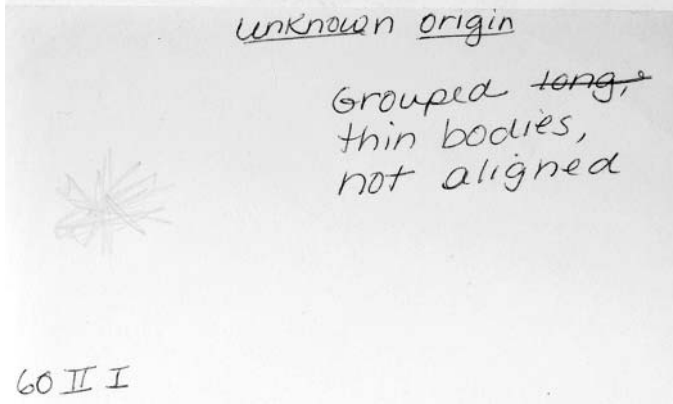 unknown origin
Grouped long,
thin bodies,
not aligned
60 II I